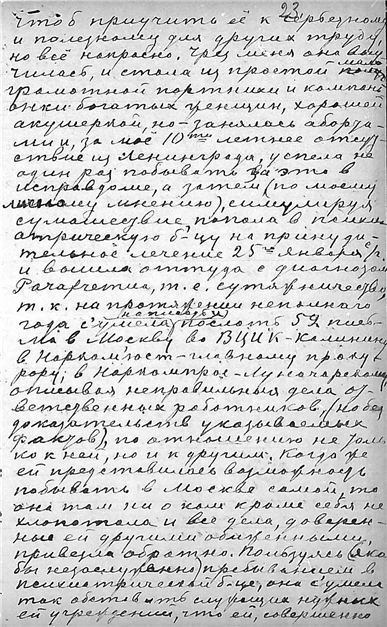 23.
чтоб приучить её к серьезному
и полезному для других труду,
но всё напрасно. Чрез меня она вы
училась, и стала из простой мало
грамотной портнихи и компань
онки богатых женщин, хорошей
акушеркой, но занялась аборта
ми и, за моё 10ти летнее отсут
ствие из Ленинграда, успела не
один раз побывать за это в
исправдоме, а затем (по моему
личному мнению), симулируя
сумасшествие попала в психи
атрическую б-цу на принуди-
тельное лечение 25го января с/г.
и вышла оттуда с диагнозом
т.е. сутяжничество,
т.к. на протяжении неполного
года сумела написать и послать 59 пи
сем в Москву во ВЦИК-Калинину
в Наркомюст-главному проку
рору; в Наркомпрос-Луначарскому
описывая неправильные дела от-
ветственных работников, (но без
доказательств указываемых
фактов), по отношению не толь
ко к ней, но и к другим. Когда же
ей представилась возможность
побывать в Москве самой, то
она там ни о ком кроме себя не
хлопотала и все дела, доверен-
ные ей другими обиженными,
привезла обратно. Пользуясь (яко
бы незаслуженно) пребыванием в
психиатрической б-це, она сумела
так обставить служащих нужных
ей учреждений, что ей, совершенно